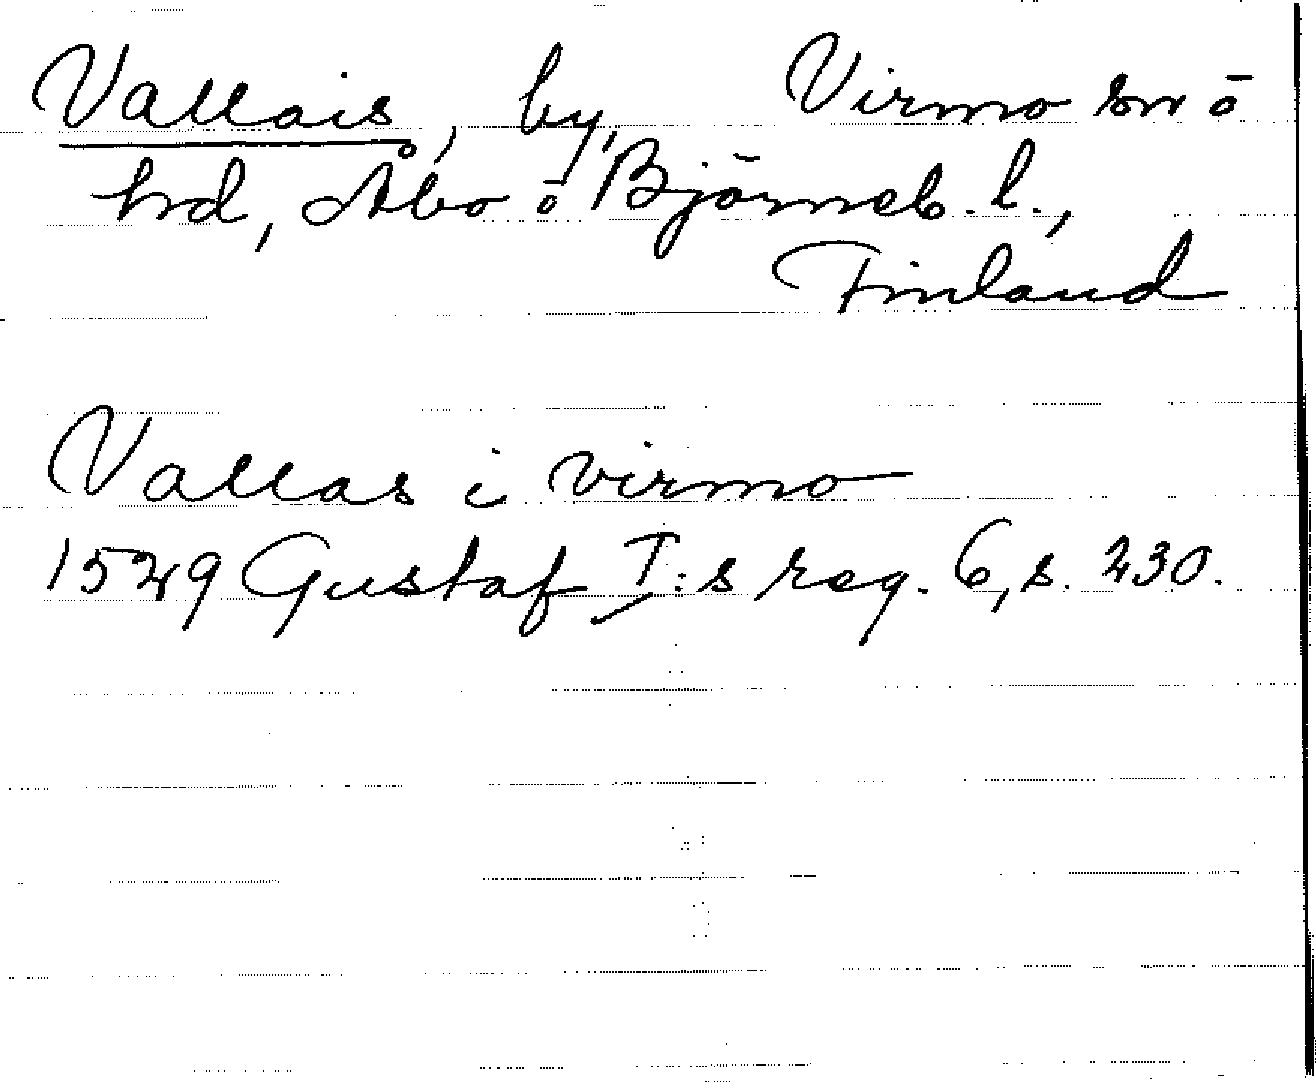 Vallais, by, Virmo sn ō
hd, Åbo ō Björneb. l.,
Finland
Vallas i virmo
1529 Gustaf I:s reg. 6, s. 230.